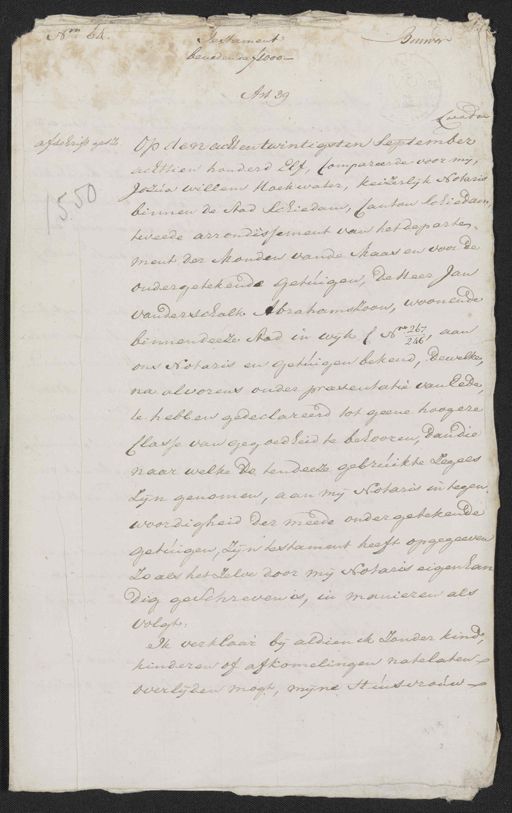 No. 64. Testament
beneden de f1000-
Art 39
afschrift gest.
15.50
Op den achtentwintigsten September
achttien honderd Elf, Compareerde voor mij,
Jozua Willem Hoekwater, keizerlijk Notaris
binnen de stad Schiedam, Canton Schiedam,
tweede arrondissement van het departe-
ment der Monden van de Maas en voor de
ondergetekende getuigen, De Heer Jan
van der schalk Abrahamszoon, woonende
binnen deeze stad in wijk C No. 267/246, aan
ons Notaris en getuigen bekend, dewelke,
na alvorens onder præsentatie van Eede,
te hebben gedeclareerd tot geene hoogere
Classe van gegoedheid te behooren, dan die
naar welke De ten deeze gebruikte Zegels
Zijn genomen, aan mij Notaris in tegen-
woordigheid der meede ondergetekende
getuigen, Zijn testament heeft opgegeeven
Zo als het Zelve door mij Notaris eigenhan
dig geschreven is, in manieren als
volgt.
Ik verklaar bij aldien ik Zonder kind,
kinderen of afkomelingen natelaten
overlijden mogt, mijne Huisvrouw